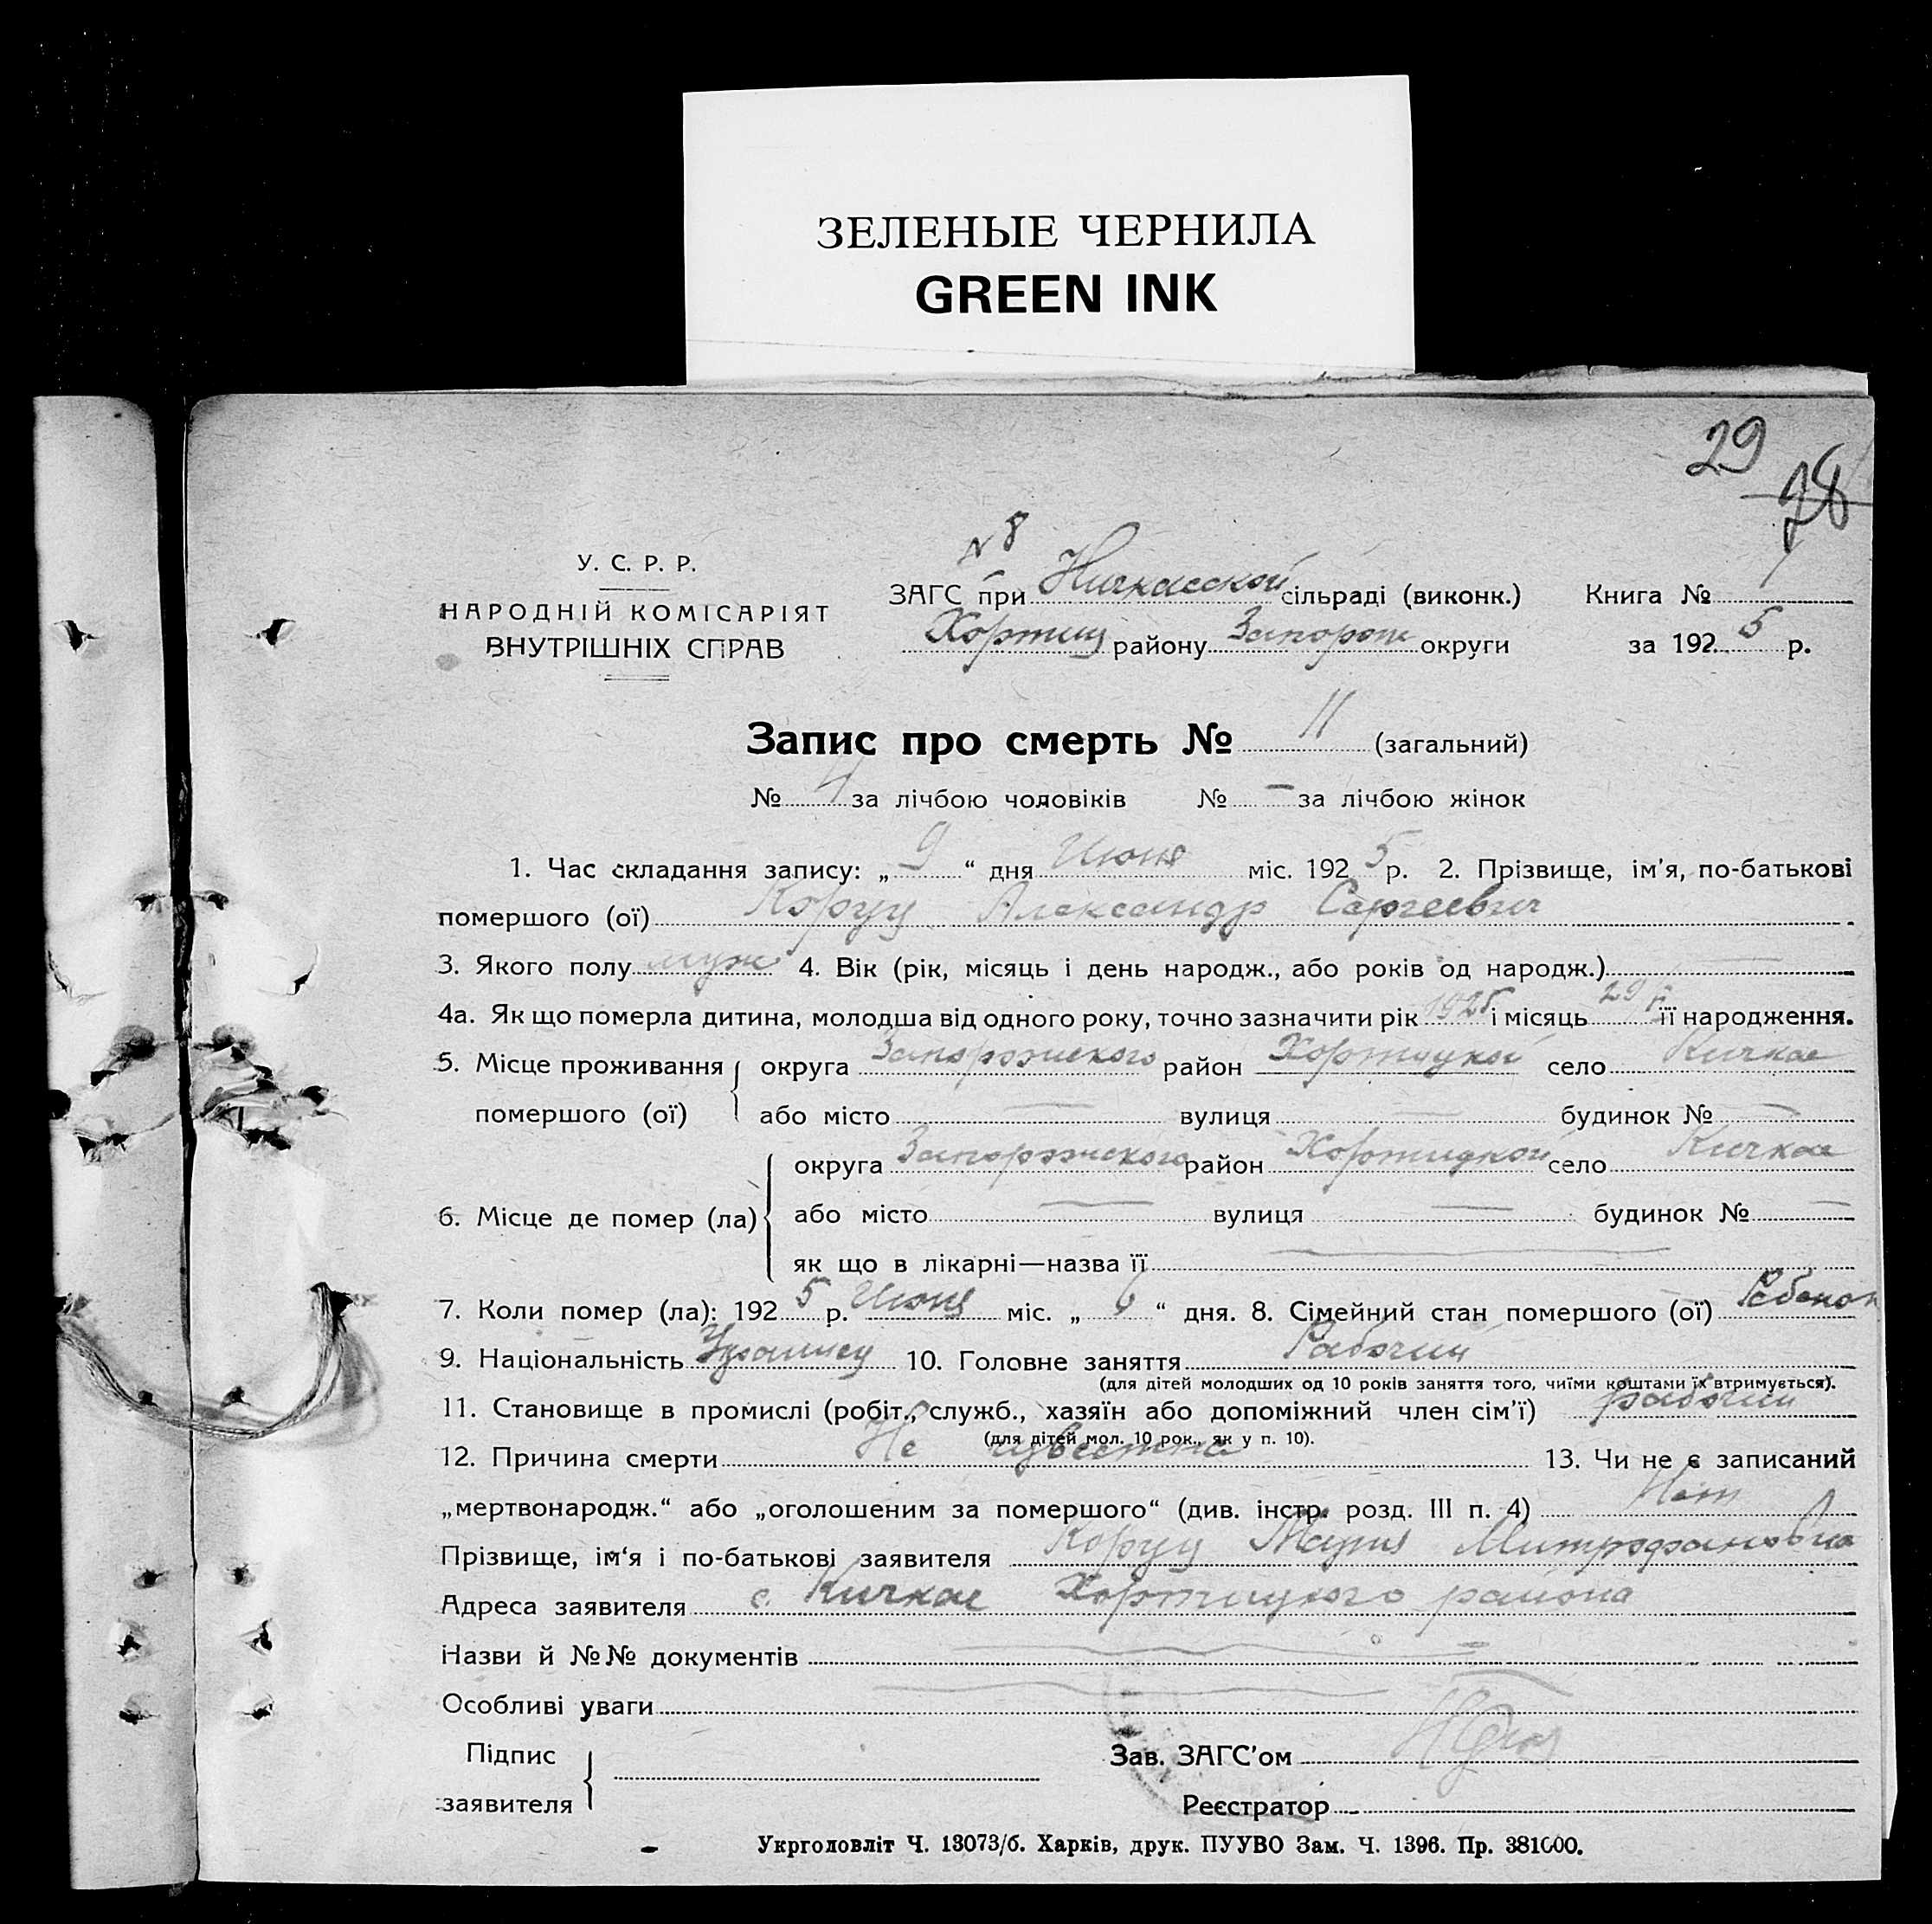 ЗЕЛЕНЫЕ ЧЕРНИЛА
GREEN INK
29
28
У. С. Р. Р.
НАРОДНІЙ КОМІСАРІЯТ
ВНУТРІШНІХ СПРАВ
N 8
ЗАГС при Кичкасской сільраді (виконк.) Книга № 1
Хортиц району Запорож округи за 1925 р.
Запис про смерть № 11 (загальний)
№ 4 за лічбою чоловіків № — за лічбою жінок
1. Час складання запису: „ 9 “ дня Июня міс. 1925 р. 2. Прізвище, ім'я, по-батькові
помершого (ої) Александр Сергеевич
3. Якого полу муж 4. Вік (рік, місяць і день народж., або років од народж.) —
4а. Як що померла дитина, молодша від одного року, точно зазначити рік 1925 і місяць її народження.
5. Місце проживання округа Запорожского район Хортицкой село Кичкас
помершого (ої) або місто — вулиця — будинок № —
округа Запорожского район Хортицкой село Кичкас
6. Місце де помер (ла) або місто — вулиця — будинок № —
як що в лікарні—назва її —
7. Коли помер (ла): 1925 р. Июня міс. „ 6 “ дня. 8. Сімейний стан помершого (ої) Ребенок
9. Національність 10. Головне заняття Рабочий
(для дітей молодших од 10 років заняття того, чиїми коштами їх втримується).
11. Становище в промислі (робіт., служб., хазяїн або допоміжний член сім'ї) рабочий
(для дітей мол. 10 рок., як у п. 10).
12. Причина смерти Не известна 13. Чи не є записаний
„мертвонародж.“ або „оголошеним за помершого“ (див. інстр. розд. III п. 4) Нет
Прізвище, ім‘я і по-батькові заявителя Мария Митрофановна
Адреса заявителя с. Кичкас Хортицкого района
Назви й №№ документів —
Особливі уваги —
Підпис
заявителя
Зав. ЗАГС'ом
Реєстратор
Укрголовліт Ч. 13073/б. Харків, друк. ПУУВО Зам. Ч. 1396. Пр. 381000.